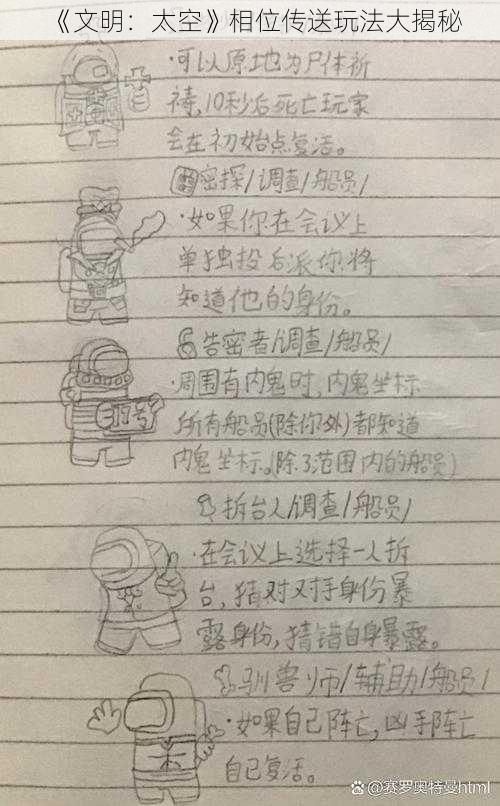 《文明：太空》相位传送玩法大揭秘
·可以原地为尸体祈
祷,10秒后死亡玩家
会在初始点复活。
密探/调查/船员/
·如果你在会议上
单独投后派你将
知道他的身份。
告密者/调查/船员/
·周围有内鬼时,内鬼坐标
所有船员(除你外)都知道
内鬼坐标。(除了范围内的船员)
拆台人/调查/船员/
·在会议上选择一人拆
台,猜对对手身份暴
露身份,猜错自身暴露。
驯兽师/辅助/船员/
·如果自己阵亡,凶手阵亡
自己复活。
赛罗奥特曼html